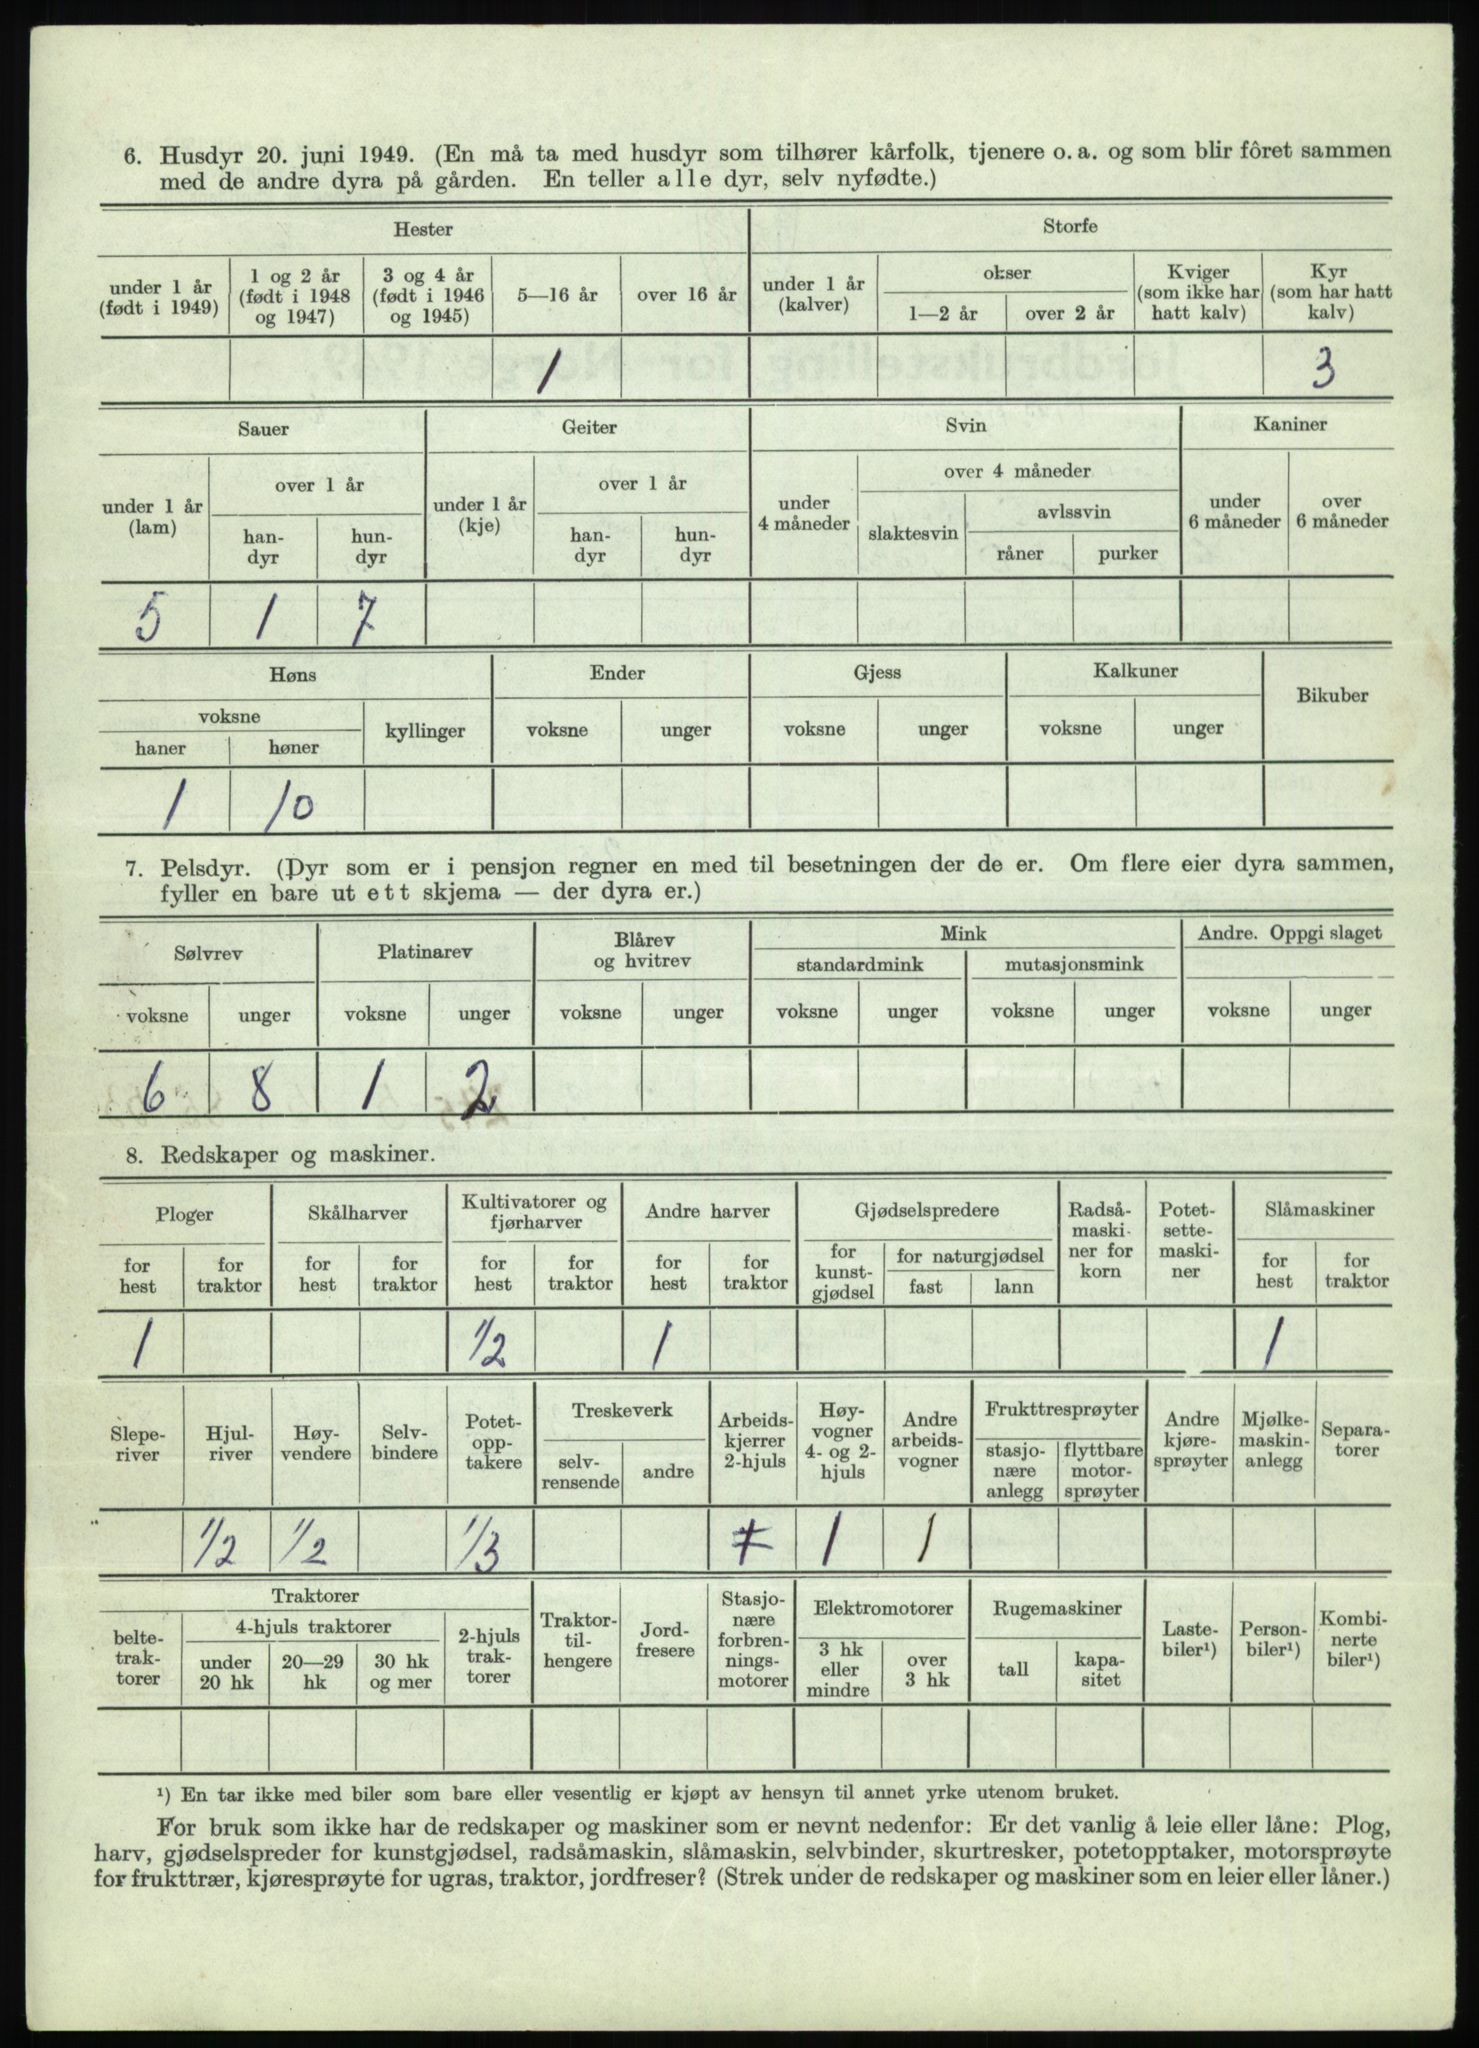 6. Husdyr 20. juni 1949. (En må ta med husdyr som tilhører kårfolk, tjenere o. a. og som blir fôret sammen
med de andre dyra på gården. En teller alle dyr, selv nyfødte.)
Hester Storfe
under 1 år (født i 1949) 1 og 2 år (født i 1948 og 1947) 3 og 4 år (født i 1946 og 1945) 5—16 år over 16 år under 1 år (kalver) okser 1—2 år over 2 år Kviger (som ikke har hatt kalv) Kyr (som har hatt kalv)
1 3
Sauer Geiter Svin Kaniner
under 1 år (lam) over 1 år han-dyr hun-dyr under 1 år (kje) over 1 år han-dyr hun-dyr under 4 måneder over 4 måneder slaktesvin avlssvin råner purker under 6 måneder over 6 måneder
5 1 7
Høns Ender Gjess Kalkuner Bikuber
voksne haner høner kyllinger voksne unger voksne unger voksne unger
1 10
7. Pelsdyr. (Dyr som er i pensjon regner en med til besetningen der de er. Om flere eier dyra sammen,
fyller en bare ut ett skjema — der dyra er.)
Sølvrev Platinarev Blårev og hvitrev Mink Andre. Oppgi slaget
standardmink mutasjonsmink
voksne unger voksne unger voksne unger voksne unger voksne unger voksne unger
6 8 1 2
8. Redskaper og maskiner.
Ploger Skålharver Kultivatorer og fjørharver Andre harver Gjødselspredere Radså-maski-ner for korn Potet-sette-maski-ner Slåmaskiner
for hest for traktor for hest for traktor for hest for traktor for hest for traktor for kunst-gjødsel for naturgjødsel fast lann for hest for traktor
1 1/2 1 1
Slepe-river Hjul-river Høy-vendere Selv-bindere Potet-opp-takere Treskeverk selv-rensende andre Arbeids-kjerrer 2-hjuls Høy-vogner 4- og 2-hjuls Andre arbeids-vogner Frukttresprøyter stasjo-nære anlegg flyttbare motor-sprøyter Andre kjøre-sprøyter Mjølke-maskin-anlegg Separa-torer
1/2 1/2 1/3 1 1
Traktorer
belte-trak-torer 4-hjuls traktorer under 20 hk 20—29 hk 30 hk og mer 2-hjuls trak-torer Traktor-til-hengere Jord-fresere Stasjo-nære forbren-nings-motorer Elektromotorer 3 hk eller mindre over 3 hk Rugemaskiner tall kapa-sitet Laste-biler¹) Person-biler¹) Kombi-nerte biler¹)
¹) En tar ikke med biler som bare eller vesentlig er kjøpt av hensyn til annet yrke utenom bruket.
For bruk som ikke har de redskaper og maskiner som er nevnt nedenfor: Er det vanlig å leie eller låne: Plog,
harv, gjødselspreder for kunstgjødsel, radsåmaskin, slåmaskin, selvbinder, skurtresker, potetopptaker, motorsprøyte
for frukttrær, kjøresprøyte for ugras, traktor, jordfreser? (Strek under de redskaper og maskiner som en leier eller låner.)